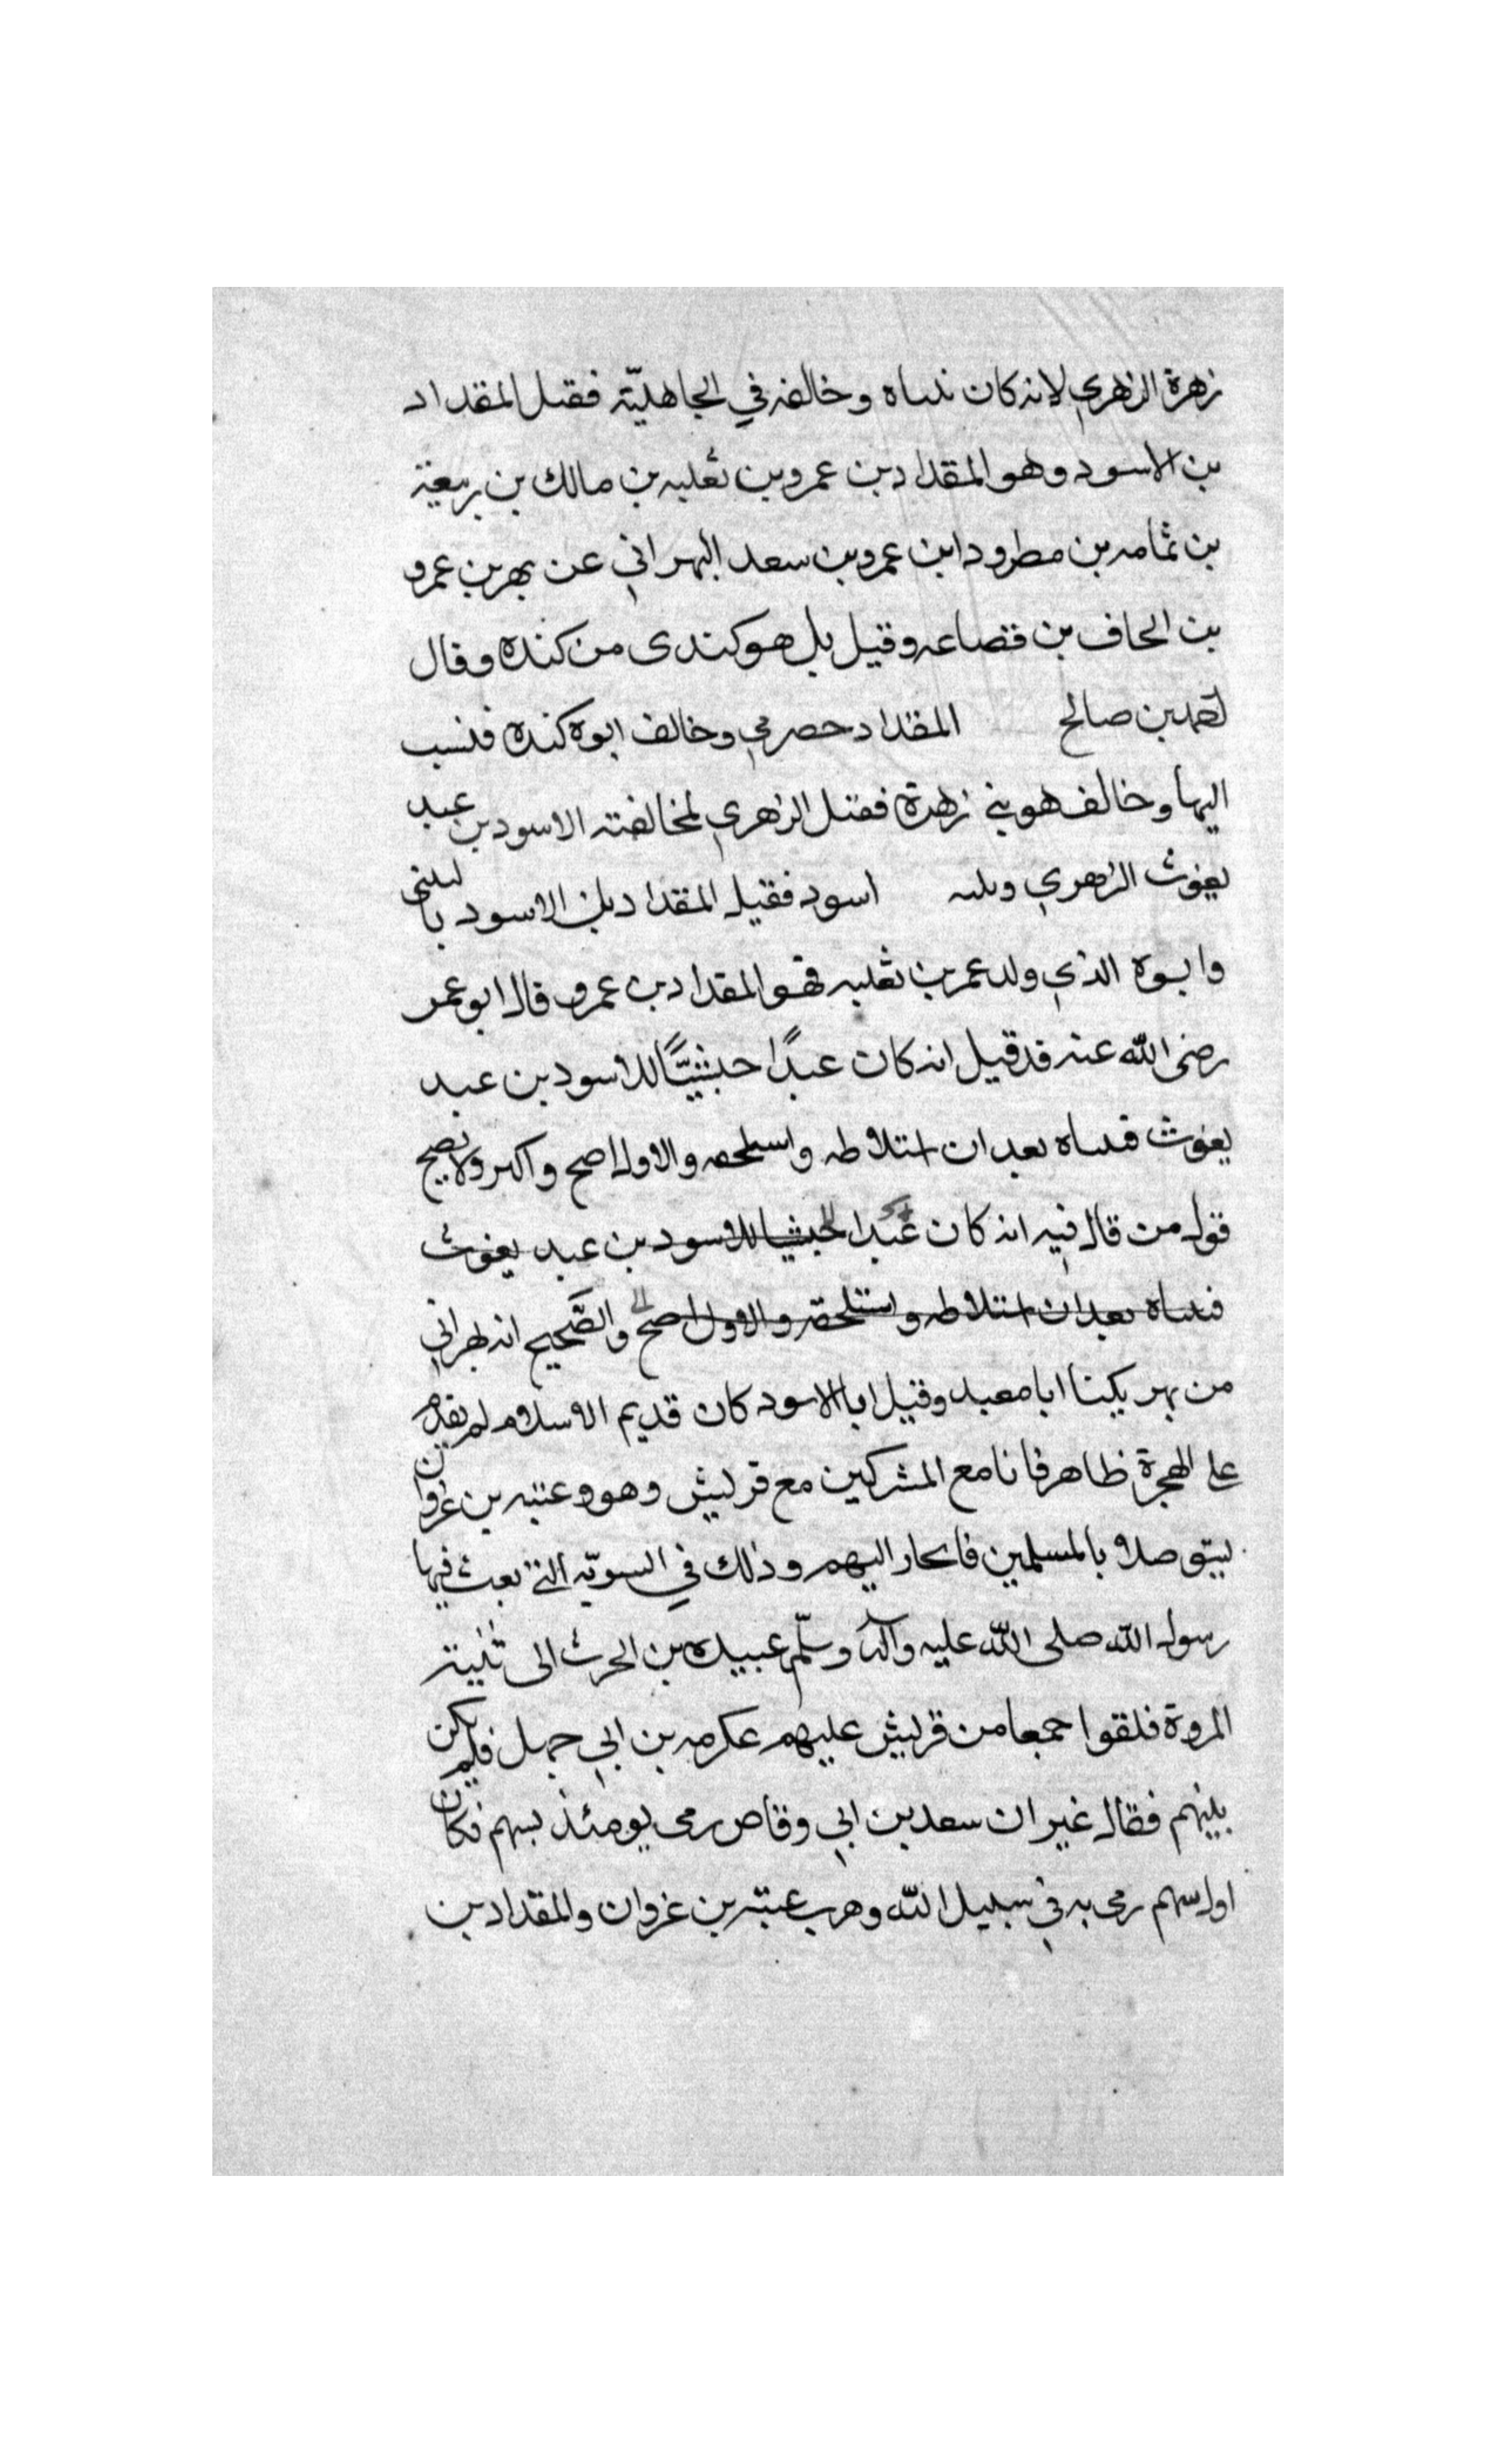 زهرة الزهري لانه كان تبناه وخالفه في الجاهليّة فقيل المقداد
بن الاسود وهو المقداد بن عمرو بن ثعلبه بن مالك بن ربيعة
بن ثمامه بن مطرود ابن عمرو بن سعد البهراني عن بهر بن عمرو
بن الحاف بن قضاعه وقيل بل هو كندى من كنده وقال
احمد بن صالح المقداد حصرمي وخالف ابوه كنده فنسب
اليها وخالف هو بني زهرة فقيل الزهري لمخالفته الاسود بن عبد
يغوث الزهري اسود فقيل المقداد بن الاسود بالتبنى
وابوه الذي ولد عمر بن ثعلبه فهو المقداد بن عمرو قال ابو عمر
رضى اللّه عنه قد قيل انه كان عبدًا حبشيًّا للاسود بن عبد
يغوث فتبناه بعد ان استلاطه واستلحقه والاول اصح واكبر ولا يصح
قول من قال فيه انه كان عبدا حبشيا للاسود بن عبد يغوث
فتبناه بعد ان استلاطه واستلحقه والاول اصح والصّحيح انه بهراني
من بهر يكينا ابا معبد وقيل ابا الاسود كان قديم الاسلام لم يقدم
على الهجرة ظاهر فانا مع المشركين مع قريش وهو وعتبه بن غزوان
ليتوصلا بالمسلمين فانحاز اليهم وذلك في السويّه التي بعث فيها
رسول اللّه صلى اللّه عليه واله وسلّم عبيده بن الحرث الى ثنية
المروة فلقوا جمعا من قريش عليهم عكرمه بن ابي جهل فلم يكن
بينهم فقال غير ان سعد بن ابي وقاص رمى يومئذ بسهم فكان
اول سهم رمى به في سبيل اللّه وهرب عتبه بن غزوان والمقداد بن